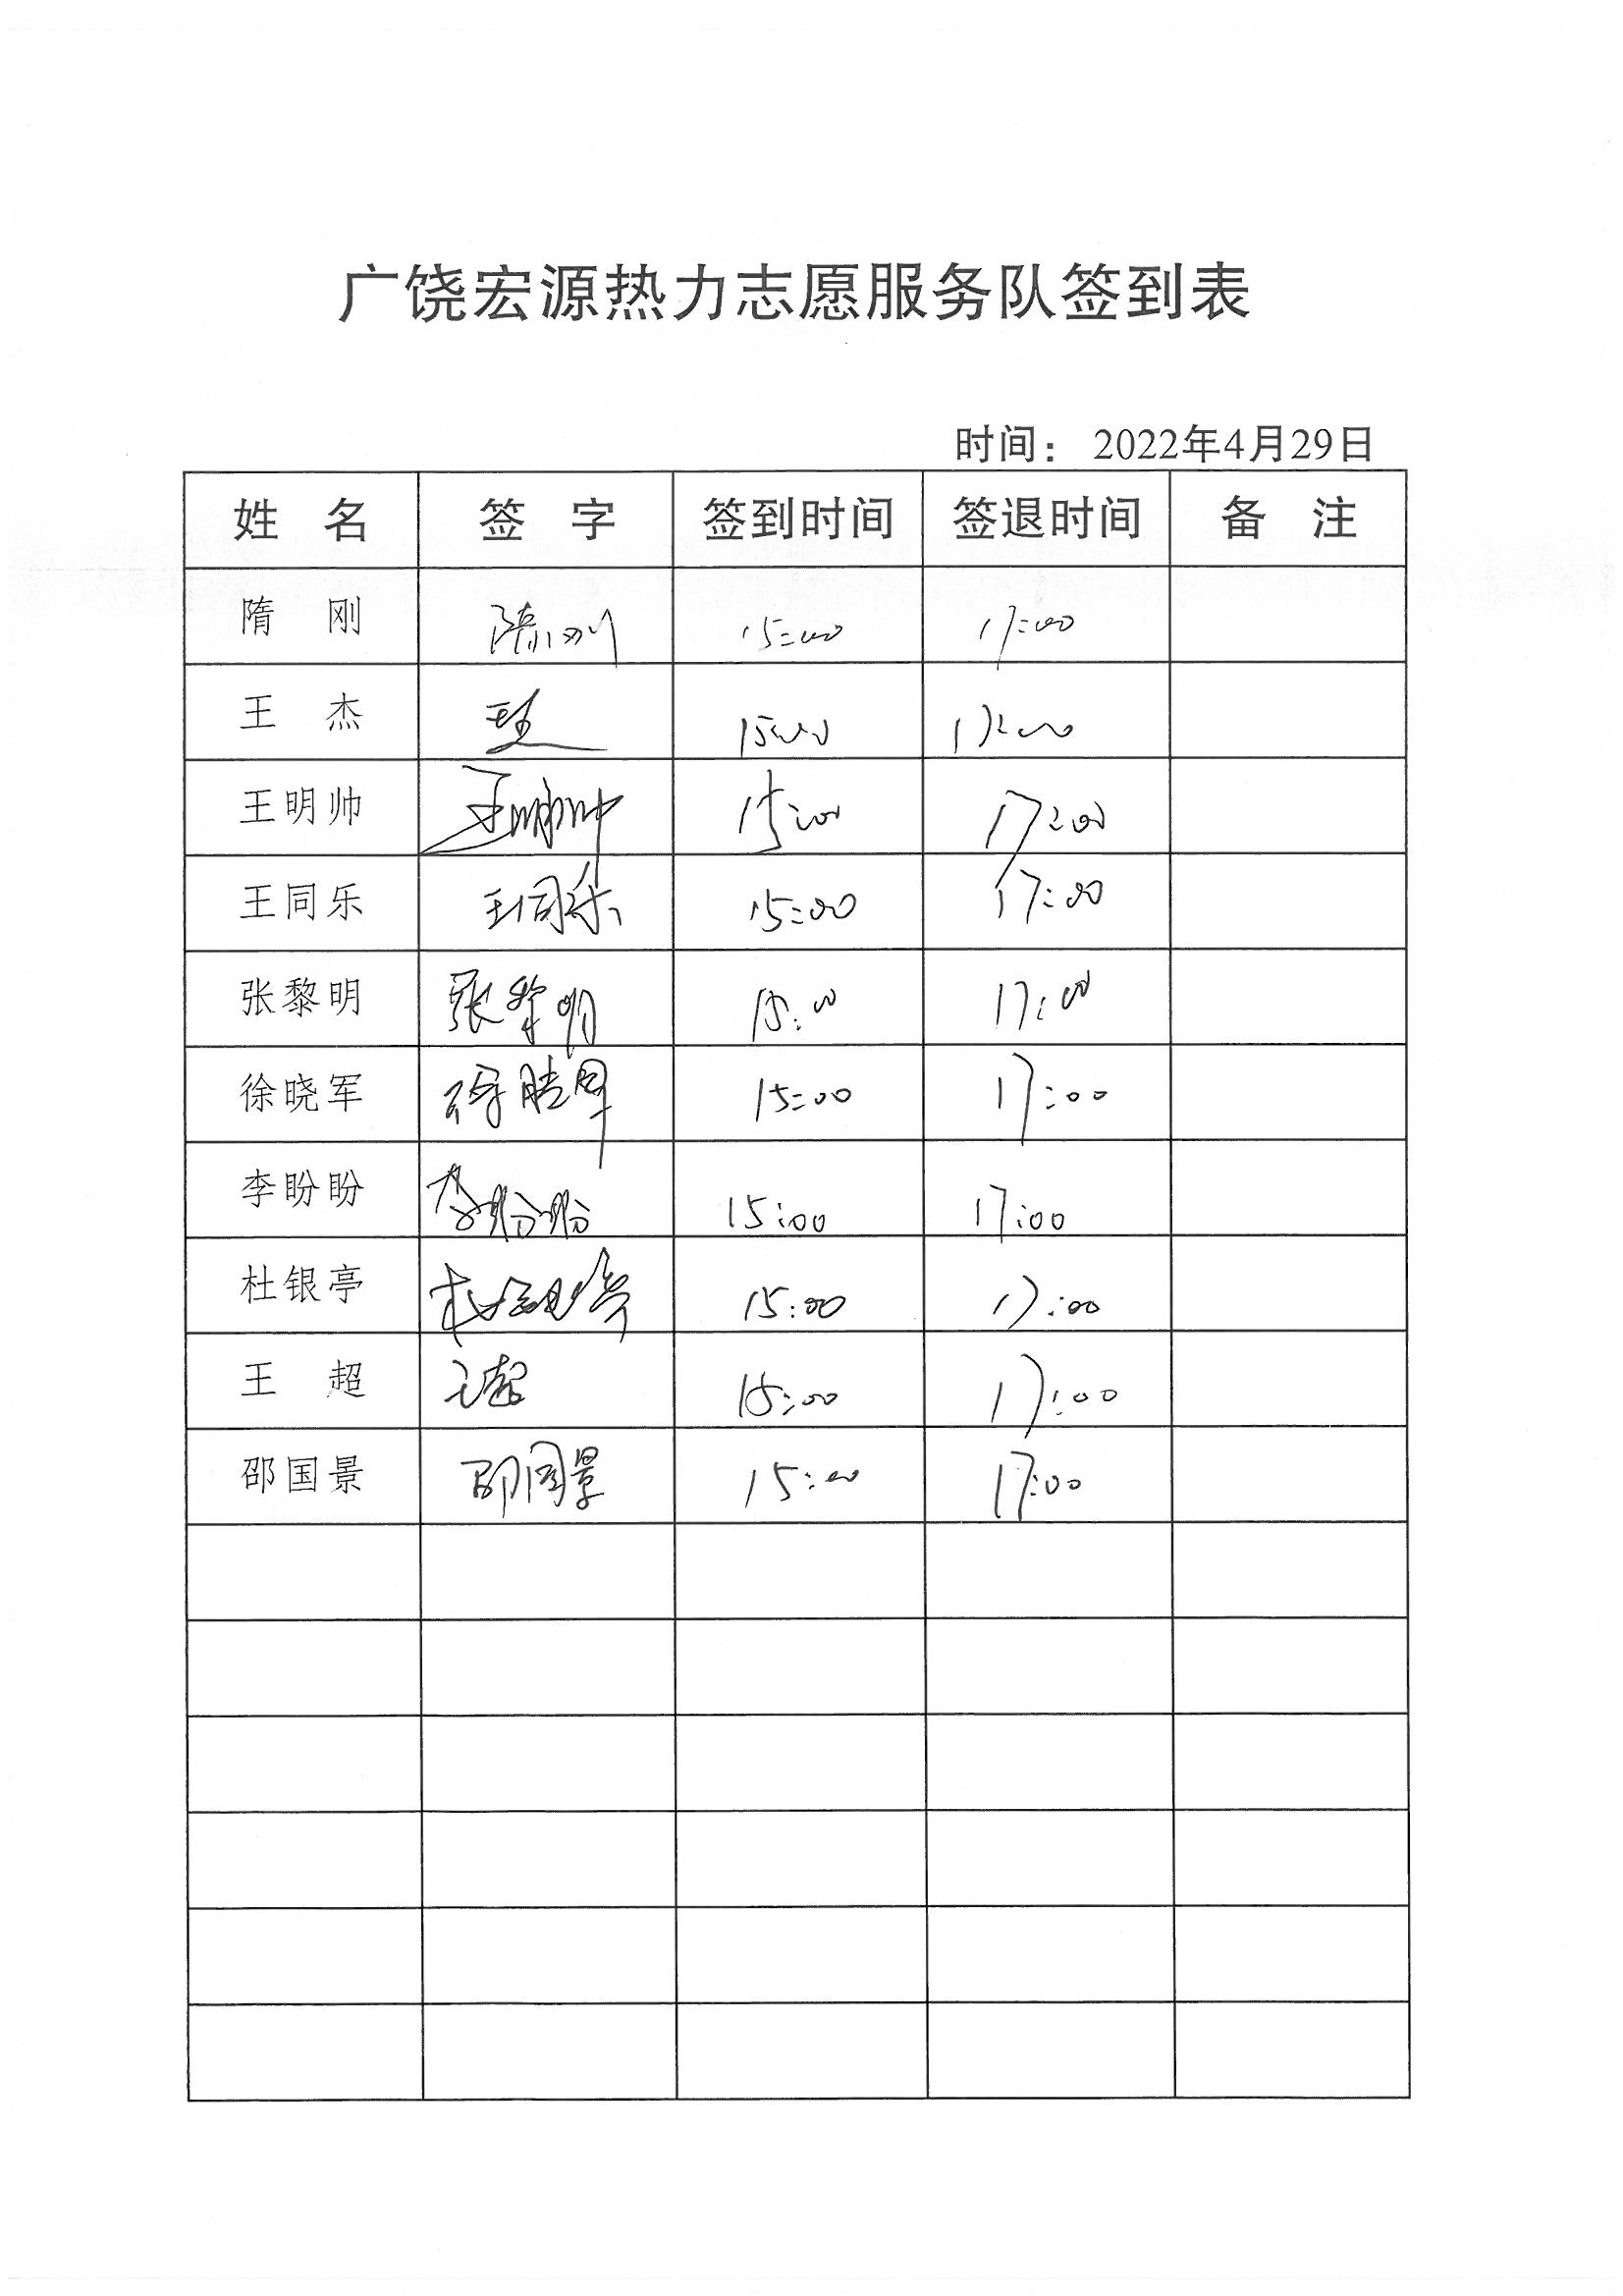 广饶宏源热力志愿服务队签到表
时间： 2022年4月29日
姓 名 签 字 签到时间 签退时间 备 注
隋 刚 隋刚 15:00 17:00
王 杰 王杰 15:00 17:00
王明帅 王明帅 15:00 17:00
王同乐 王同乐 15:00 17:00
张黎明 张黎明 15:00 17:00
徐晓军 徐晓军 15:00 17:00
李盼盼 李盼盼 15:00 17:00
杜银亭 杜银亭 15:00 17:00
王 超 王超 15:00 17:00
邵国景 邵国景 15:00 17:00